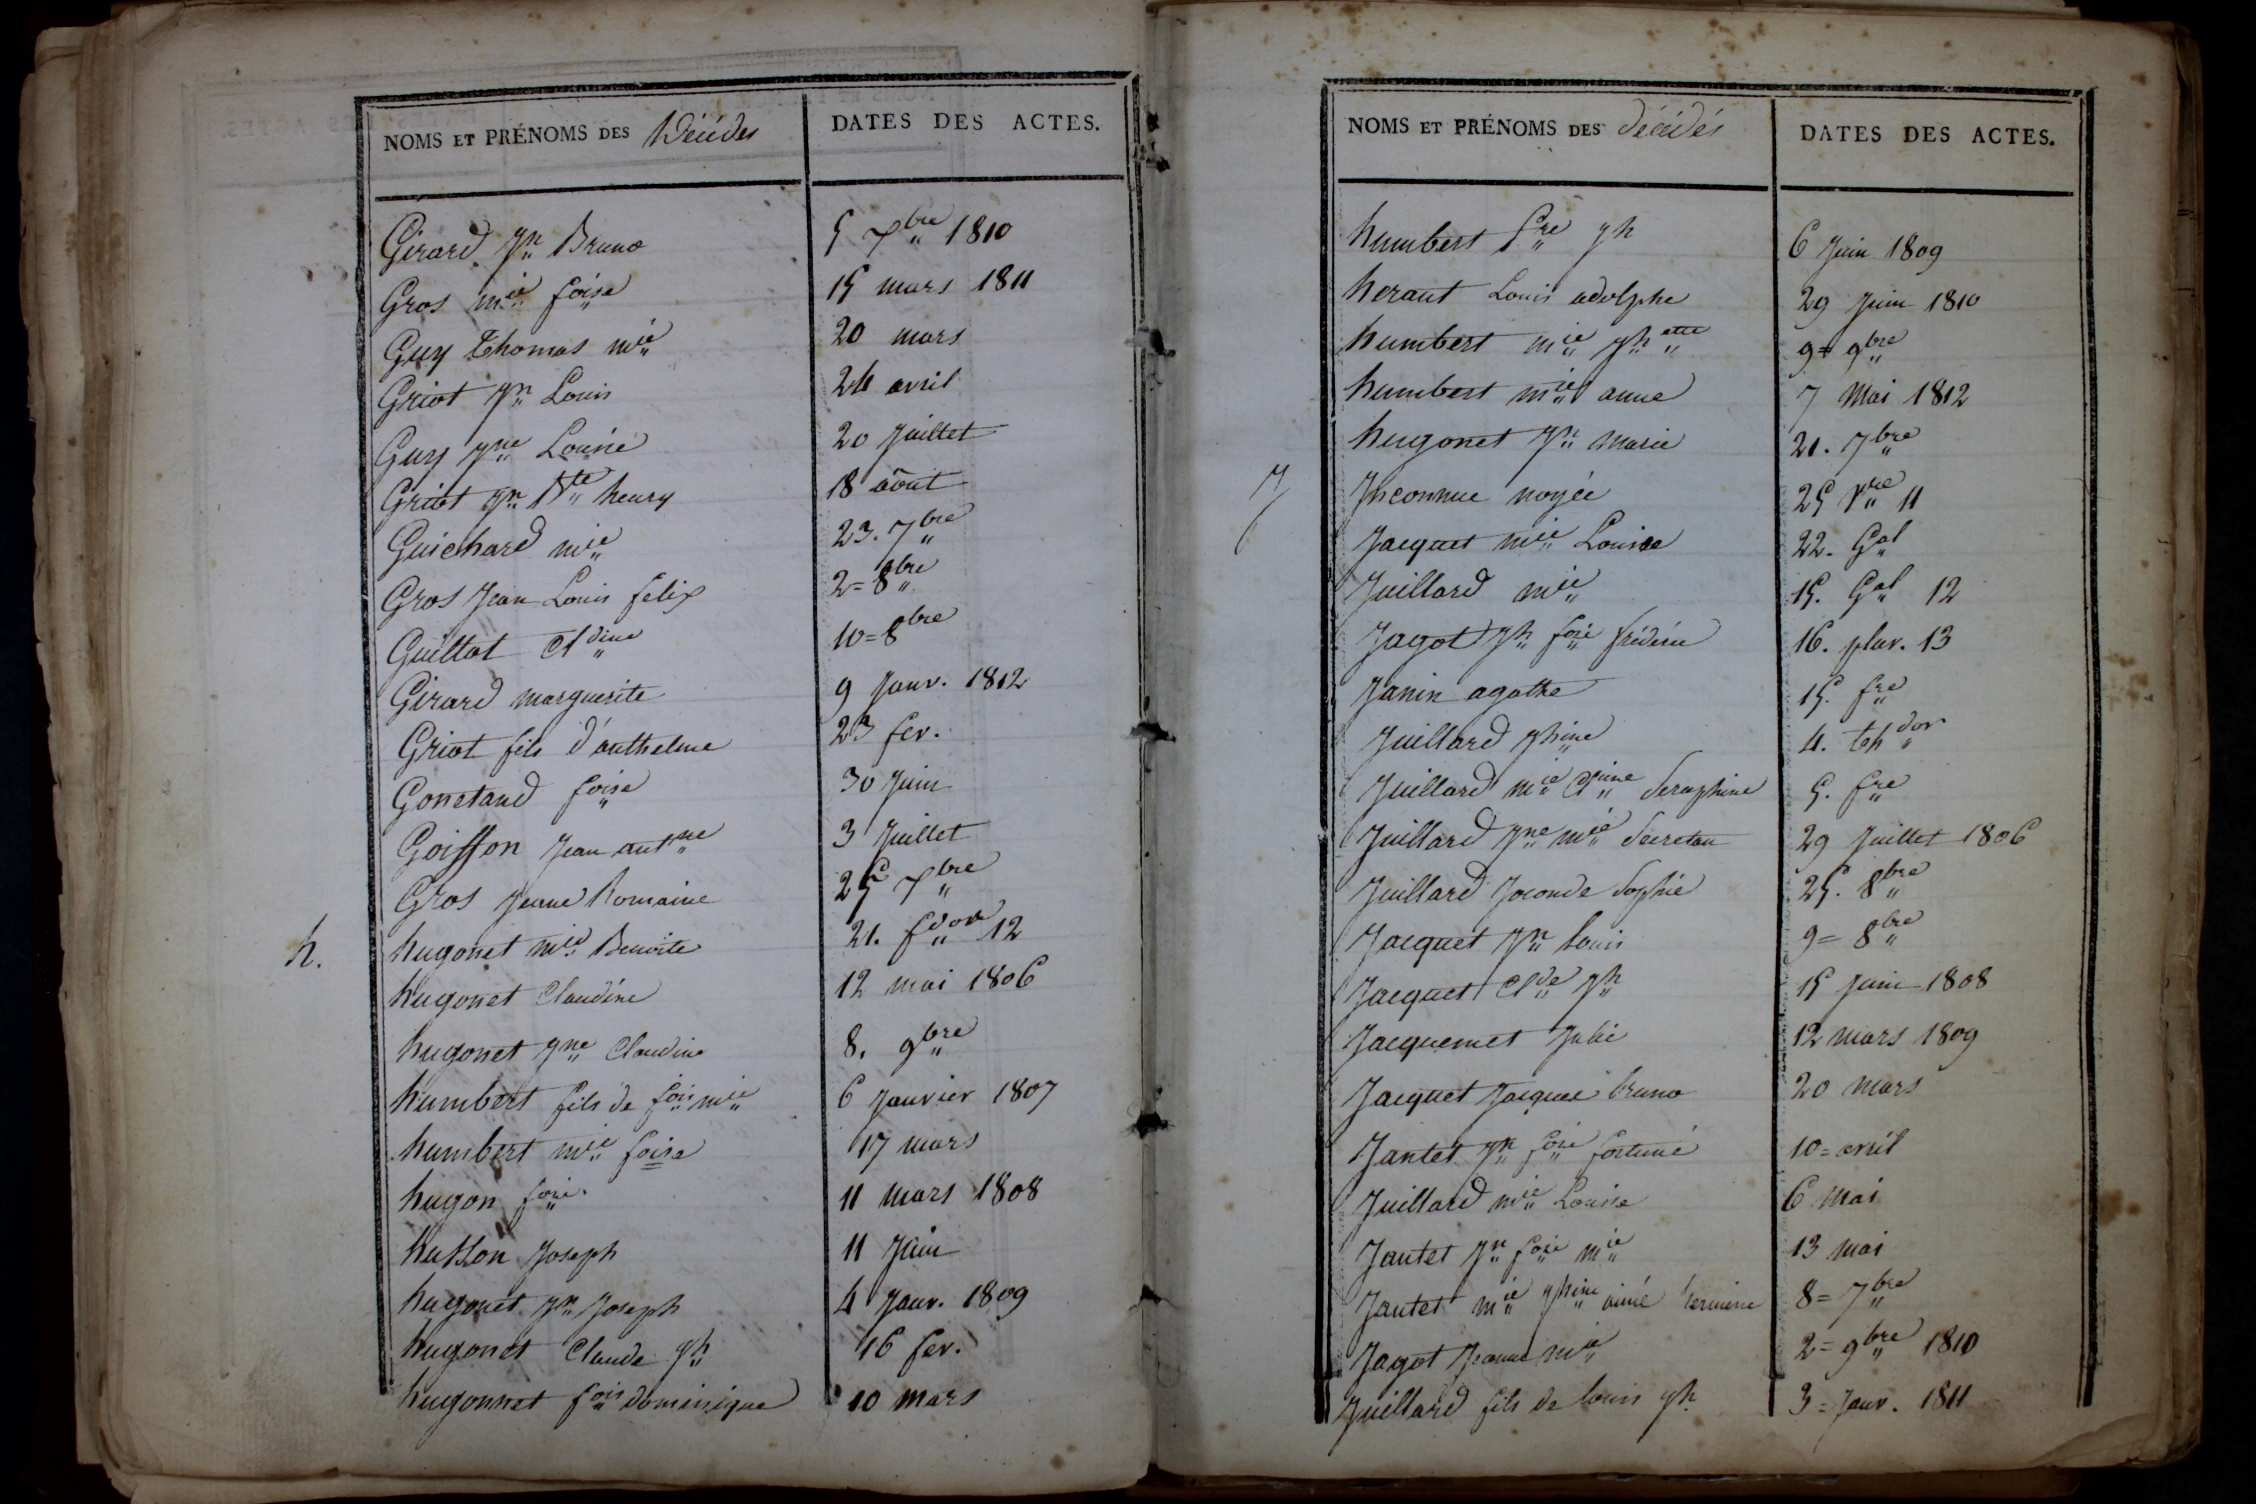 NOMS ET PRÉNOMS DES Décédés DATES DES ACTES.
Girard Jn Bruno 5 7bre 1810
Gros mie foise 15 mars 1811
Guy Thomas mie 20 mars
Griot Jn Louis 24 avril
Guy Jne Louise 20 Juillet
Griot Jn Bte henry 18 août
Guichard mie 23. 7bre
Gros Jean Louis felix 2= 8bre
Guillot Cldine 10= 8bre
Girard marguerite 9 Janv. 1812
Griot fils d'anthelme 23 fev.
Gonetand foise 30 Juin
Goiffon Jean antne 3 Juillet
Gros Jeanne Romaine 25 7bre
h.
hugonet mie Benoite 21. fdor 12
hugonet Claudine 12 mai 1806
hugonet Jne Claudine 8. 9bre
humbert fils de fois mie 6 Janvier 1807
humbert mie foise 17 mars
hugon fois 11 mars 1808
Joseph 11 Juin
hugonet Jn Joseph 4 Janv. 1809
hugonet Claude Jh 16 fev.
hugonnet fois dominique 10 mars
NOMS ET PRÉNOMS DES décédés DATES DES ACTES.
humbert Jh 6 Juin 1809
heraut Louis adolphe 29 Juin 1810
humbert mie Jhette 9= 9bre
humbert mie anne 7 Mai 1812
hugonet Jn Marie 21. 7bre
J
Inconnue noyée 25 11
Jacquet mie Louise 22. Gal
Juillard mie 15. Gal 12
Jagot Jh fois fréderic 16. pluv. 13
Janin agathe 15. fre
Juillard Jhine 4. thdor
Juillard mie Cldine Seraphine 5. fre
Juillard Jne mie Secretan 29 Juillet 1806
Juillard Joconde Sophie 25. 8bre
Jacquet Jn Louis 9= 8bre
Jacquet Clde Jh 15 Juin 1808
Jacquemet Julie 12 mars 1809
Jacquet Jacques bruno 20 mars
Jantet Jn fois fortuné 10= avril
Juillard mie Louise 6 mai
Jantet Jn fois mie 13 mai
Jantet mie Jhine aimé 8= 7bre
Jagot Jeanne mie 2= 9bre 1810
Juillard fils de louis Jh 3= Janv. 1811